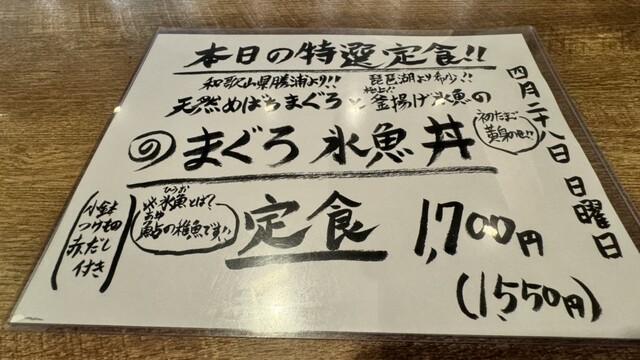 本日の特選定食!!
和歌山県勝浦より!!
琵琶湖より希少!!
天然めばちまぐろと 釜揚げ氷魚の
のまぐろ氷魚丼
初たまご
黄身のせ!!
四月二十八日 日曜日
小鉢
つけもの
赤だし
付き
ひうお
氷魚とは?
あゆ
鮎の稚魚です!!
定食 1,700円
(1,550円)